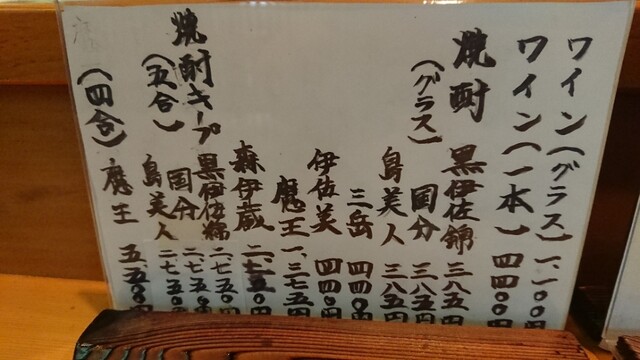 ワイン(グラス) 一、一〇〇円
ワイン(一本) 四四〇〇円
焼酎 黒伊佐錦 三八五円
(グラス) 国分 三八五円
島美人 三八五円
三岳 四四〇円
伊佐美 四四〇円
魔王 一、三七五円
森伊蔵 二、七五〇円
焼酎キープ 黒伊佐錦 二、七五〇円
(五合) 国分 二、七五〇円
島美人 二、七五〇円
(四合) 魔王 五、五〇〇円